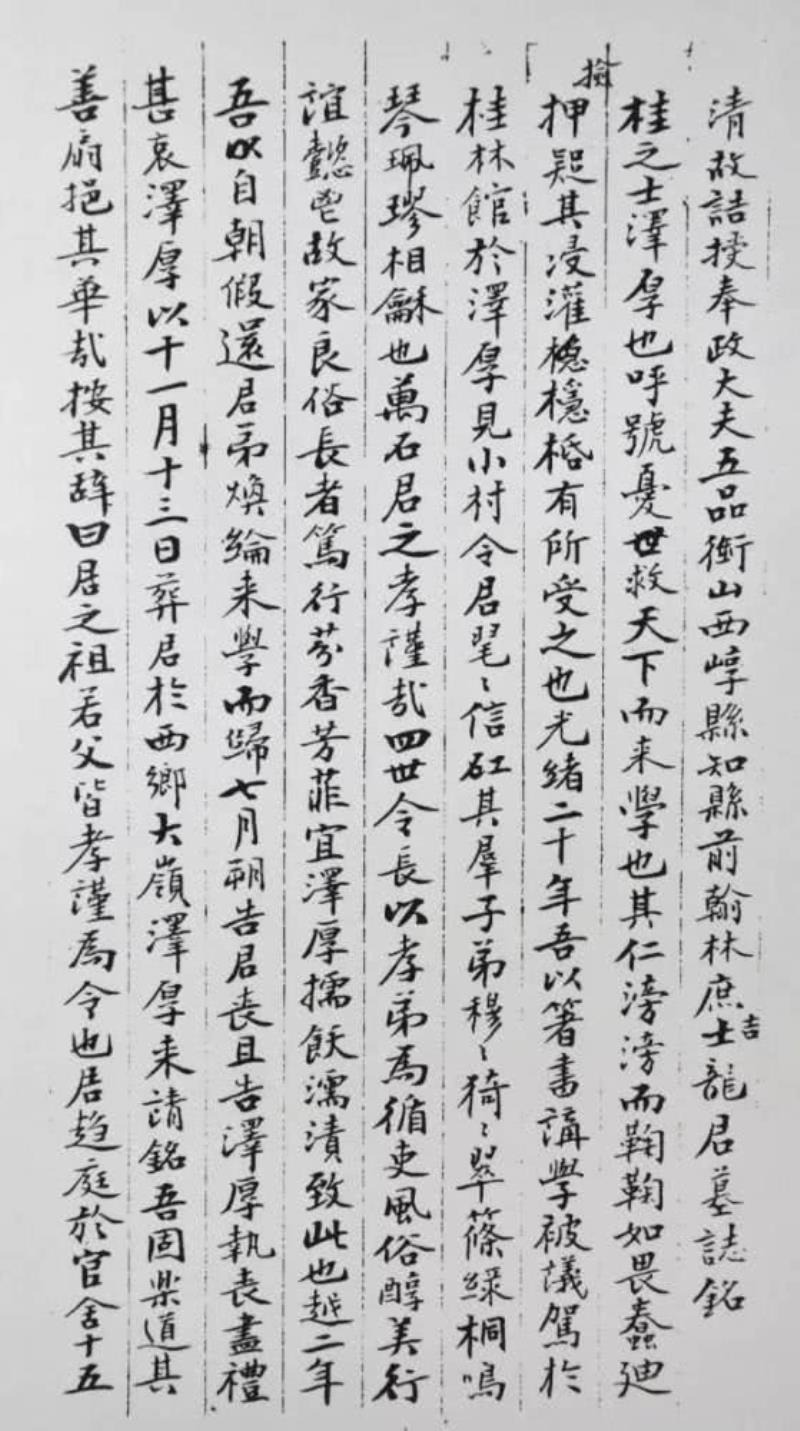 清故誥授奉政大夫五品銜山西崞縣知縣前翰林庶吉士龍君墓誌銘
桂之士澤厚也呼號憂世救天下而来學也其仁滂滂而鞠鞠如畏蠢迪
檢押疑其浸灌檼栝有所受之也光緒二十年吾以箸書講學被議駕於
桂林館於澤厚見小村令君毣〻信矼其羣子弟穆〻猗〻翠篠綠桐鳴
琴珮璆相龢也萬石君之孝謹哉四世令長以孝弟為循吏風俗醇美行
誼懿鬯故家良俗長者篤行芬香芳菲宜澤厚擩飫濡漬致此也越二年
吾以自朝假還君弟煥綸来學而歸七月朔告君喪且告澤厚執喪盡禮
甚哀澤厚以十一月十三日葬君於西鄉大嶺澤厚来請銘吾固樂道其
善肩挹其華哉按其辭曰居之祖若父皆孝謹為令也居趋庭於官舍十五